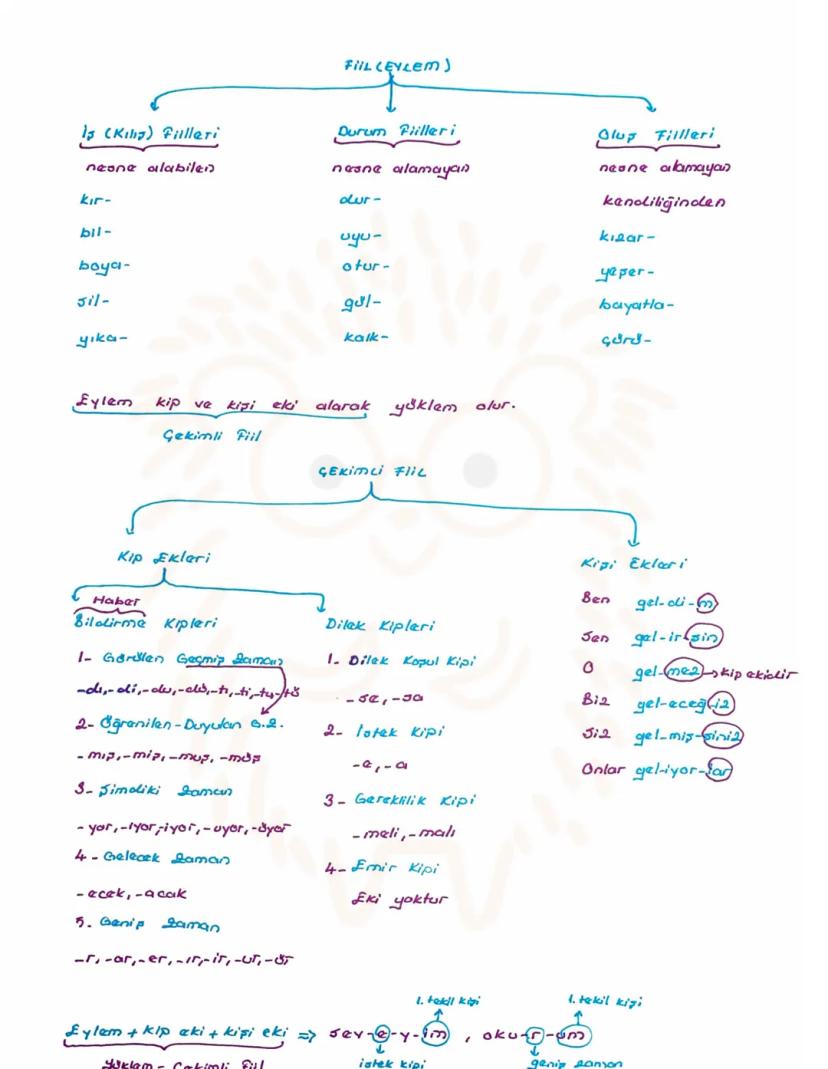 FİİL (EYLEM)
İş (Kılış) Fiilleri
nesne alabilen
kır-
bil-
boya-
sil-
yıka-
Durum Fiilleri
nesne alamayan
dur-
uyu-
otur-
gül-
kalk-
Oluş Fiilleri
nesne alamayan
kendiliğinden
kızar-
yeşer-
bayatla-
çürü-
Eylem kip ve kişi eki alarak yüklem olur.
Çekimli Fiil
ÇEKİMLİ FİİL
Kip Ekleri
Haber
Bildirme Kipleri
1- Görülen Geçmiş Zaman
-dı,-di,-du,-dü,-tı,-ti,-tu,-tü
2- Öğrenilen-Duyulan G.Z.
-mış,-miş,-muş,-müş
3- Şimdiki Zaman
-yor,-ıyor,-iyor,-uyor,-üyor
4- Gelecek Zaman
-ecek,-acak
5. Geniş Zaman
-r,-ar,-er,-ır,-ir,-ur,-ür
Dilek Kipleri
1. Dilek Koşul Kipi
-se,-sa
2- İstek Kipi
-e,-a
3- Gereklilik Kipi
-meli,-malı
4- Emir Kipi
Eki yoktur
Kişi Ekleri
Ben gel-di-m
Sen gel-ir-sin
O gel-mez → kip ekidir
Biz gel-eceğ-iz
Siz gel-miş-siniz
Onlar gel-iyor-lar
1. tekil kişi 1. tekil kişi
Eylem + kip eki + kişi eki => sev-e-y-im , oku-r-um
Yüklem - Çekimli Fiil istek kipi geniş zaman